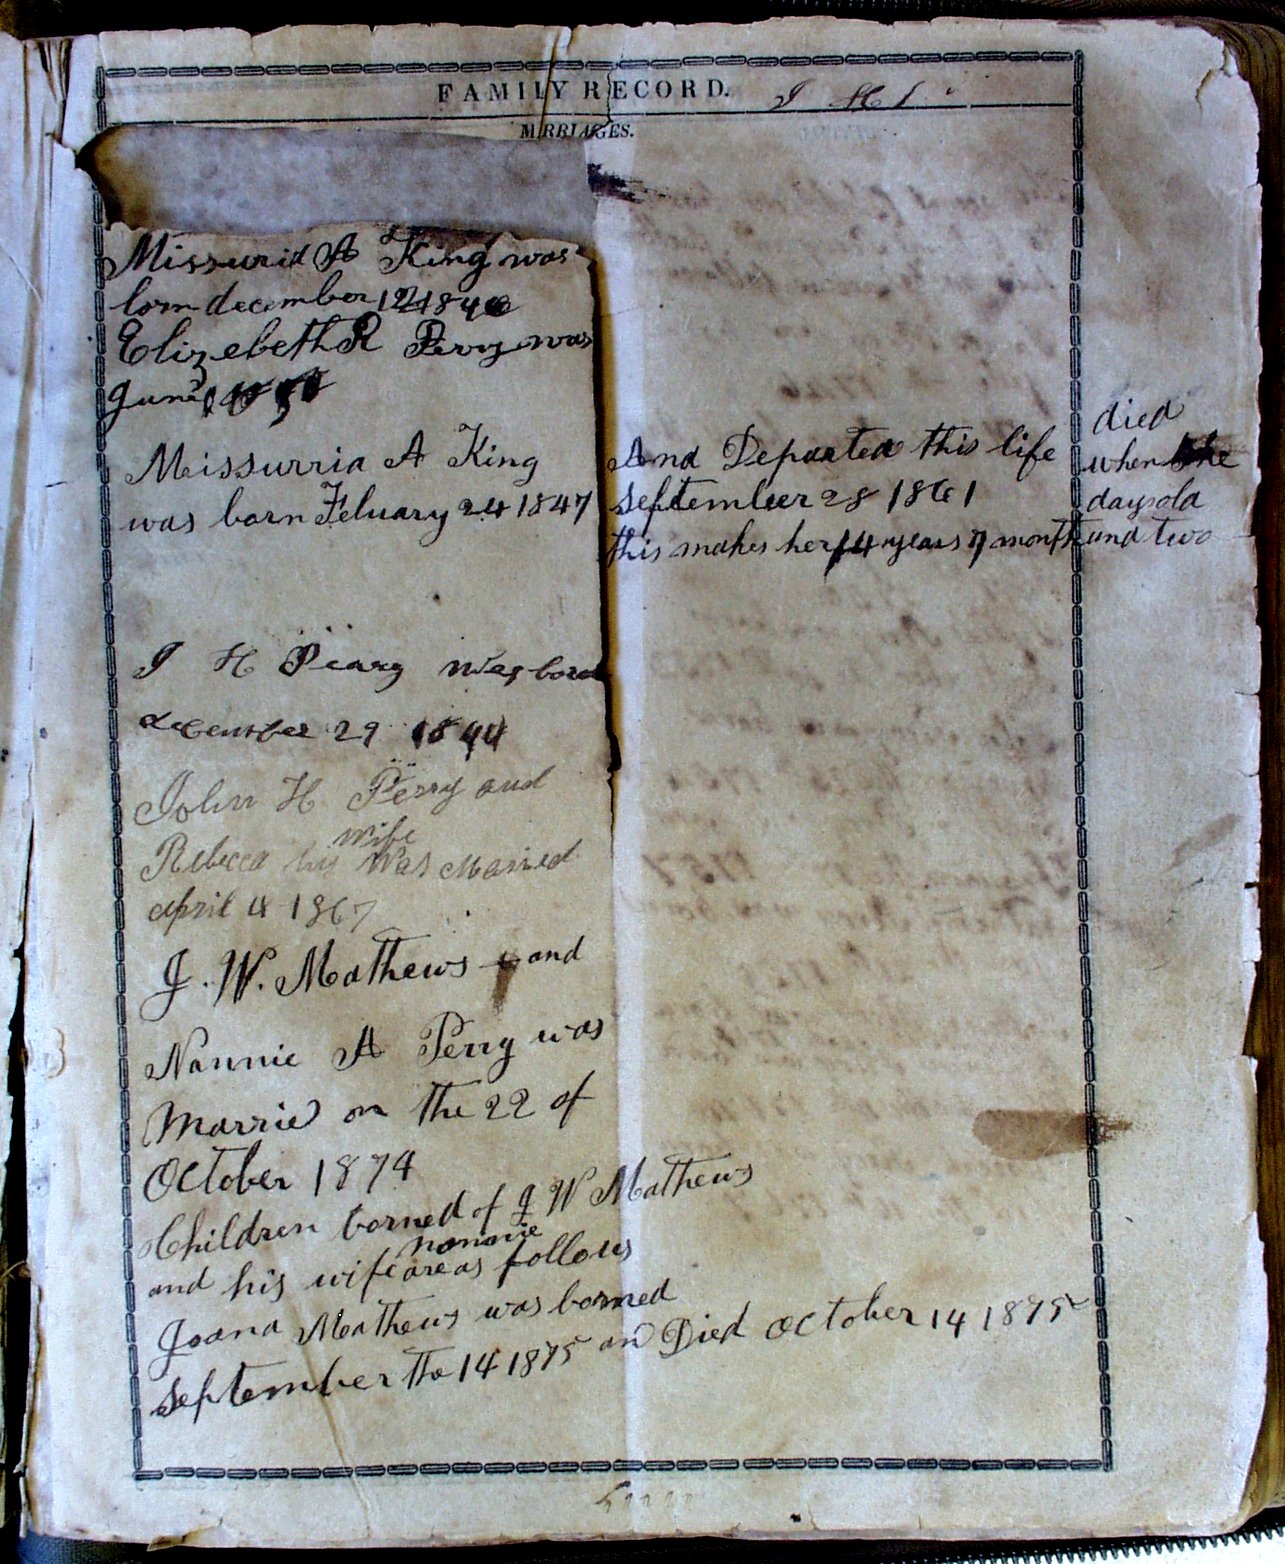 FAMILY RECORD. J H
MRRIAGES.
Missurid A King was
born december 12 1846
Elizebeth R Perry was
June
Missurria A King
was born Feluary 24 1847
And Departed this life
September 28 1861
this makes her 14 years 7 month and two
days old
when she
died
J H Peary was born
december 29 1844
John H Perry and
wife
Rebecca his Was Married
april 4 1867
J. W. Mathews and
Nannie A Perry was
Married on the 22 of
October 1874
Children borned of J W Mathews
nannie
and his wife are as follows
Joana Mathews was borned
September the 14 1875 an Died October 14 1875